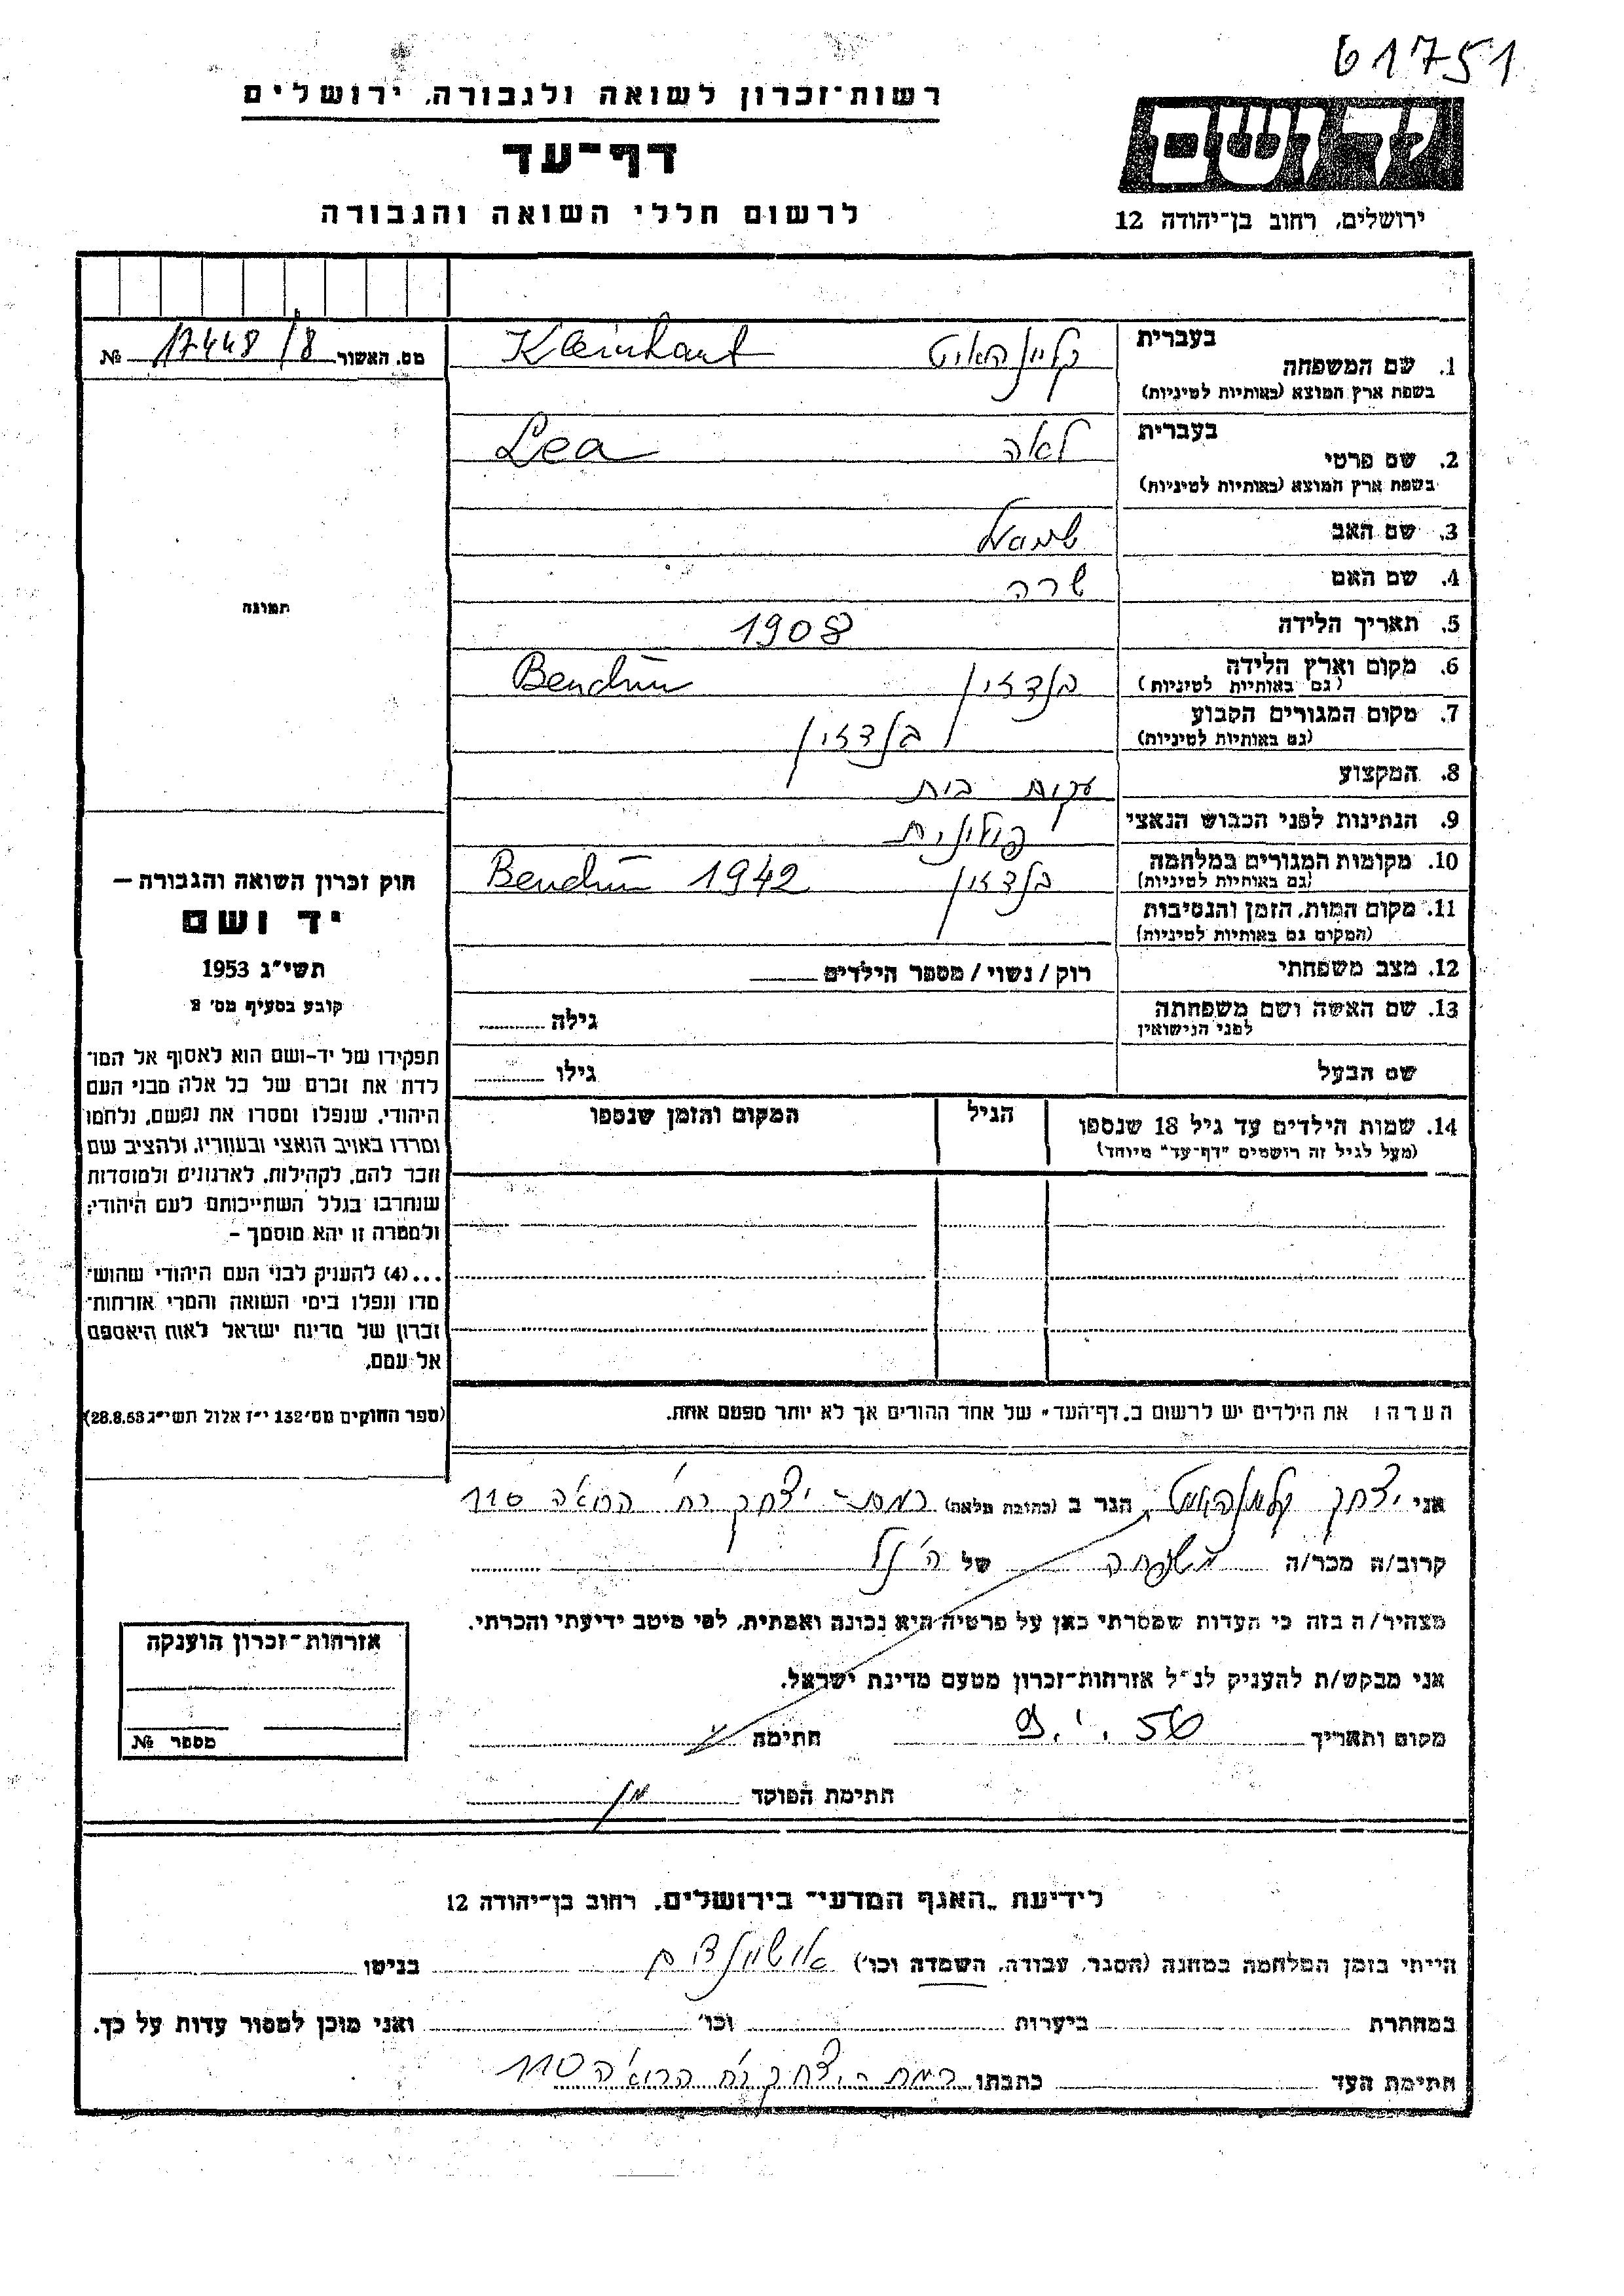 61751
רשות־זכרון לשואה ולגבורה, ירושלים
יד ושם
דף־עד
לרשום חללי השואה והגבורה
ירושלים, רחוב בן־יהודה 12
מס. האשור 17448/8 №
בעברית
1. שם המשפחה קליינהאוט Kleinhaut
בשפת ארץ המוצא (באותיות לטיניות)
בעברית
2. שם פרטי לאה Lea
בשפת ארץ המוצא (באותיות לטיניות)
3. שם האב שמואל
4. שם האם שרה
5. תאריך הלידה 1908
6. מקום וארץ הלידה בנדזין Bendzin
(גם באותיות לטיניות)
7. מקום המגורים הקבוע בנדזין
(גם באותיות לטיניות)
8. המקצוע עקרת בית
9. הנתינות לפני הכבוש הנאצי פולנית
10. מקומות המגורים במלחמה בנדזין Bendzin 1942
(גם באותיות לטיניות)
11. מקום המות, הזמן והנסיבות
(המקום גם באותיות לטיניות)
12. מצב משפחתי רוק / נשוי / מספר הילדים
13. שם האשה ושם משפחתה גילה
לפני הנישואין
שם הבעל גילו
14. שמות הילדים עד גיל 18 שנספו הגיל המקום והזמן שנספו
(מעל לגיל זה רושמים "דף־עד" מיוחד)
תמונה
חוק זכרון השואה והגבורה –
יד ושם
תשי"ג 1953
קובע בסעיף מס' 2
תפקידו של יד-ושם הוא לאסוף אל המו־
לדת את זכרם של כל אלה מבני העם
היהודי, שנפלו ומסרו את נפשם, נלחמו
ומרדו באויב הנאצי ובעוזריו, ולהציב שם
וזכר להם, לקהילות, לארגונים ולמוסדות
שנחרבו בגלל השתייכותם לעם היהודי;
ולמטרה זו יהא מוסמך –
...(4) להעניק לבני העם היהודי שהוש־
מדו ונפלו בימי השואה והמרי אזרחות־
זכרון של מדינת ישראל לאות היאספם
אל עמם.
(ספר החוקים מס' 132 י"ז אלול תשי"ג 28.8.53)
הערה: את הילדים יש לרשום ב„דף־העד" של אחד ההורים אך לא יותר מפעם אחת.
אני יצחק קליינהאוט הגר ב (כתובת מלאה) רמת-יצחק רח' הרוא"ה 110
קרוב/ה מכר/ה משפחה של ה'נ"ל
מצהיר/ה בזה כי העדות שמסרתי כאן על פרטיה היא נכונה ואמתית, לפי מיטב ידיעתי והכרתי.
אני מבקש/ת להעניק לנ"ל אזרחות־זכרון מטעם מדינת ישראל.
מקום ותאריך 9.1.56 חתימה
חתימת הפוקד
אזרחות־זכרון הוענקה
מספר №
לידיעת „האגף המדעי" בירושלים, רחוב בן־יהודה 12
הייתי בזמן המלחמה במחנה (הסגר, עבודה, השמדה וכו') בגיטו
במחתרת ביערות וכו' ואני מוכן למסור עדות על כך.
חתימת העד כתבתו רמת-יצחק רח' הרוא"ה 110